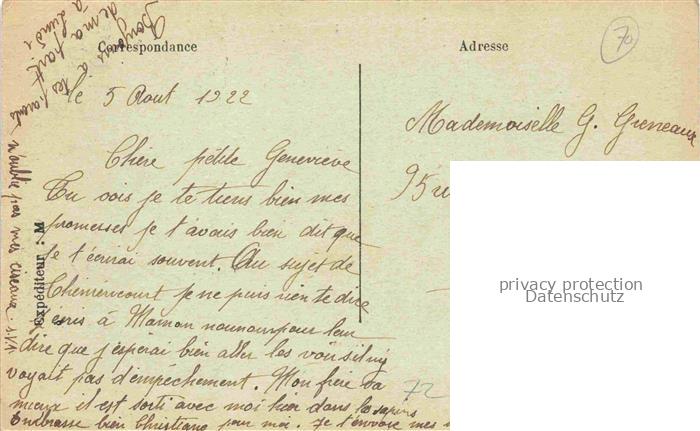 Bonjour à tes parents
de ma part
à Lundi
n'oublie pas mes ciseaux s.v.p.
Correspondance
Adresse
70
le 5 Aout 1922
Mademoiselle G. Greneaux
95
Chère pétite Geneviève
Tu vois je te tiens bien mes
promesses je t'avais bien dit que
je t'écrirai souvent. Au sujet de
Chémencourt je ne puis rien te dire
j'écris à Maman nounou pour leur
dire que j'espérai bien aller les voir si l'on y
voyait pas d'émpéchement. Mon frère va
mieux il est sorti avec moi hier dans les sapins
Embrasse bien Christiane pour moi. Je t'envoie mes
72
Expéditeur : M
privacy protection
Datenschutz